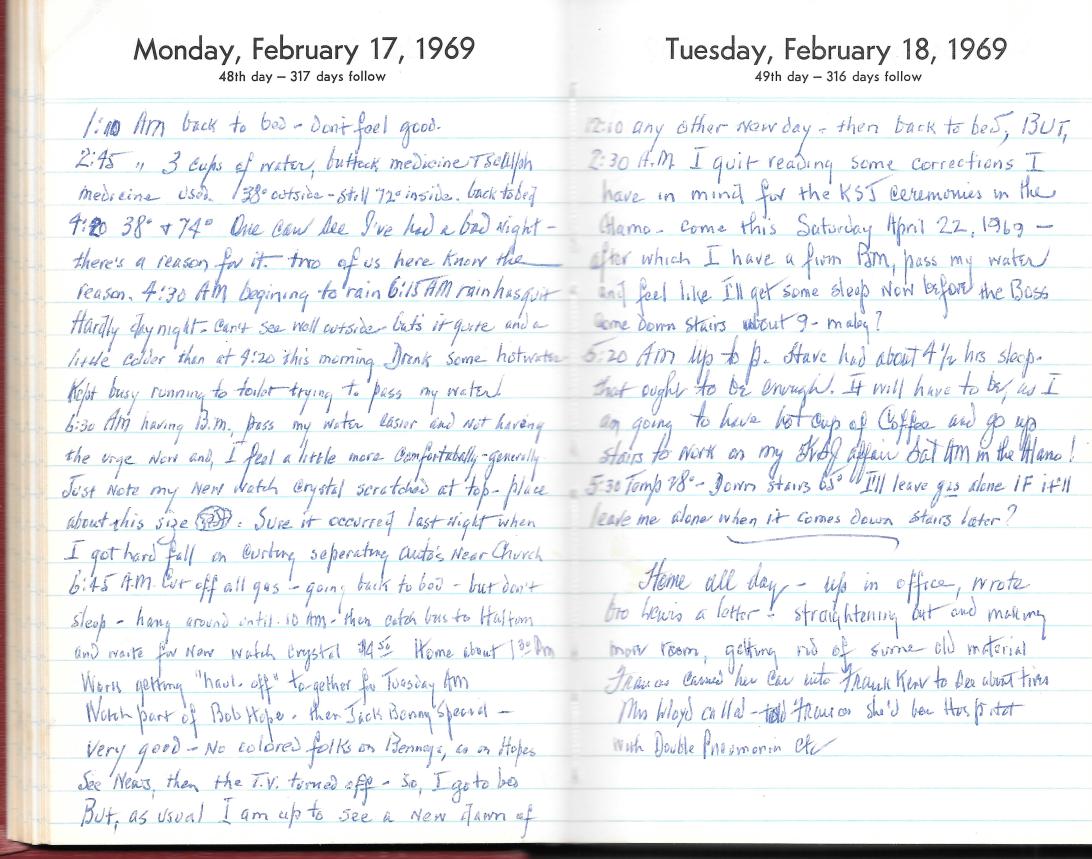 Monday, February 17, 1969
48th day – 317 days follow
1:10 AM back to bed - don't feel good.
2:45 " 3 cups of water, buttock medicine
medicine used. 38° outside - still 72° inside. back to bed
4:20 38° & 74° One can see I've had a bad night -
there's a reason for it. two of us here know the
reason. 4:30 AM begining to rain 6:15 AM rain has quit
Hardly day night - can't see well outside but's it quite and a
little colder than at 4:20 this morning Drink some hot water
Kept busy running to toilet trying to pass my water
6:30 AM having B.M., pass my water easier and not having
the urge now and, I feel a little more comfortabally - generally
Just note my new watch crystal scratched at top - place
about this size : Sure it occurred last night when
I got hard fall on curbing seperating auto's near Church
6:45 A.M. Cut off all gas - going back to bed - but don't
sleep - hang around until 10 AM - then catch bus to Haltom
and waite for new watch crystal $4 50 Home about 1 30
Work getting "haul off" to-gether for Tuesday AM
Watch part of Bob Hope - then Jack Benny Special -
very good - No colored folks on Bennys, as on Hopes
See News, then the T.V. turned off - so, I go to bed
But, as usual I am up to see a new dawn of
Tuesday, February 18, 1969
49th day – 316 days follow
12:10 any other new day - then back to bed, BUT,
2:30 A.M. I quit reading some corrections I
have in mind for the KSJ ceremonies in the
Alamo - come this Saturday April 22, 1969 -
after which I have a firm BM, pass my water
and feel like I'll get some sleep now before the Boss
come down stairs about 9 - maby?
5:20 AM Up to p. Have had about 4½ hrs sleep.
that ought to be enough. It will have to be, as I
am going to have hot cup of Coffee and go up
stairs to work on my KSJ affair Sat AM in the Alamo!
5:30 Temp 78° - Down stairs 65° I'll leave gas alone IF it'll
leave me alone when it comes down stairs later?
Home all day - up in office, wrote
bro Lewis a letter - straightening out and making
more room, getting rid of some old material
Frances carried her car into Frank Kent to see about tires
Mrs Lloyd called - told Frances she'd been Hospital
with Double Pneumonia etc